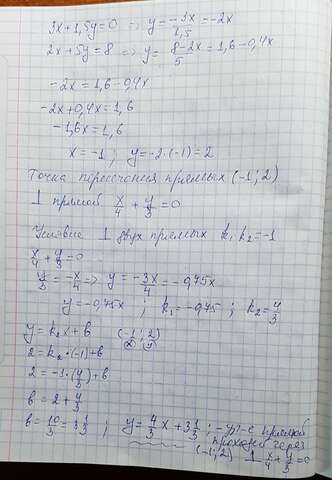 3x+1,5y=0 ⇒ y = -3x/1,5 = -2x
2x+5y=8 ⇒ y = 8-2x/5 = 1,6-0,4x
-2x=1,6-0,4x
-2x+0,4x=1,6
-1,6x=1,6
x=-1; y=-2·(-1)=2
Точка пересечения прямых (-1;2)
⊥ прямой x/4 + y/3 = 0
Условие ⊥ двух прямых k₁k₂=-1
x/4 + y/3 = 0
y/3 = -x/4 ⇒ y = -3x/4 = -0,75x
y=-0,75x; k₁=-0,75; k₂=4/3
y=k₂x+b (-1; 2)
x y
2=k₂·(-1)+b
2=-1·(4/3)+b
b=2+4/3
b=10/3=3 1/3; y=4/3 x+3 1/3; -ур-е прямой
проходей через
(-1;2) ⊥ x/4+y/3=0